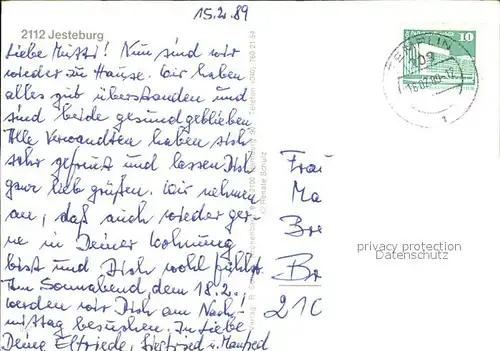 15.2.89
2112 Jesteburg
Liebe Mutti! Nun sind wir
wieder zu Hause. Wir haben
alles gut überstanden und
sind beide gesund geblieben
Alle Verwandten haben sich
sehr gefreut und lassen Dich
ganz lieb grüßen. Wir nehmen
an, daß auch wieder ger-
ne in Deiner Wohnung
bist und Dich wohl fühlst.
Am Sonnabend, dem 18.2.,
werden wir Dich am Nach-
mittag besuchen. In Liebe
Deine Elfriede, Siegfried u. Manfred
© Renate Schulz
10
Frau
Ma
Bre
Br
210
privacy protection
Datenschutz